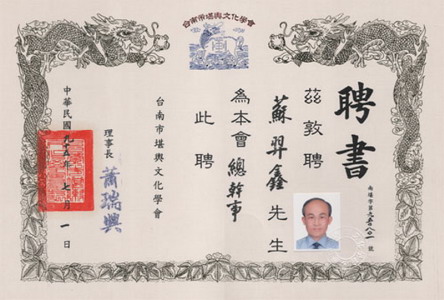 台南市堪輿文化學會
聘書
南堪字第九五八〇一號
茲敦聘
蘇羿鑫先生
為本會總幹事
此聘
台南市堪輿文化學會
理事長 蕭瑞興
中華民國九五年七月一日